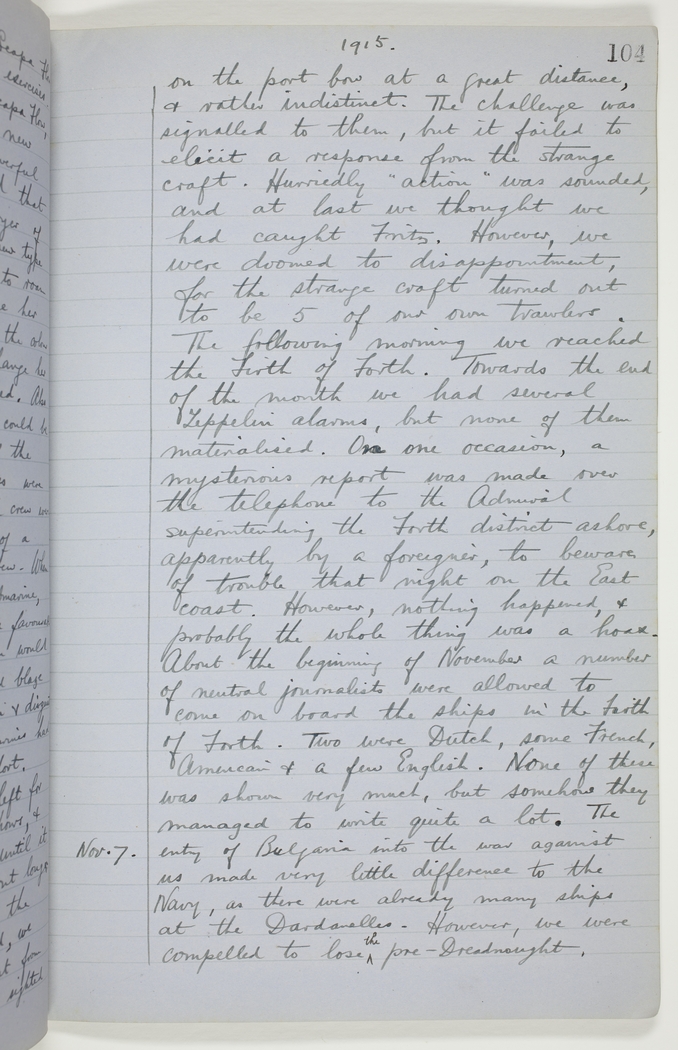 1915.
104
on the port bow at a great distance,
& rather indistinct. The challenge was
signalled to them, but it failed to
elicit a response from the strange
craft. Hurriedly "action" was sounded,
and at last we thought we
had caught Fritz. However, we
were doomed to disappointment,
for the strange craft turned out
to be 5 of our own trawlers.
The following morning we reached
the Firth of Forth. Towards the end
of the month we had several
Zeppelin alarms, but none of them
materialised. On one occasion, a
mysterious report was made over
the telephone to the Admiral
superintending the Forth district ashore,
apparently by a foreigner, to beware
of trouble that night on the East
coast. However, nothing happened, &
probably the whole thing was a hoax.
About the beginning of November a number
of neutral journalists were allowed to
come on board the ships in the Firth
of Forth. Two were Dutch, some French,
American & a few English. None of these
was shown very much, but somehow they
managed to write quite a lot. The
Nov. 7. entry of Bulgaria into the war against
us made very little difference to the
Navy, as there were already many ships
at the Dardanelles. However, we were
compelled to lose the pre-Dreadnought,